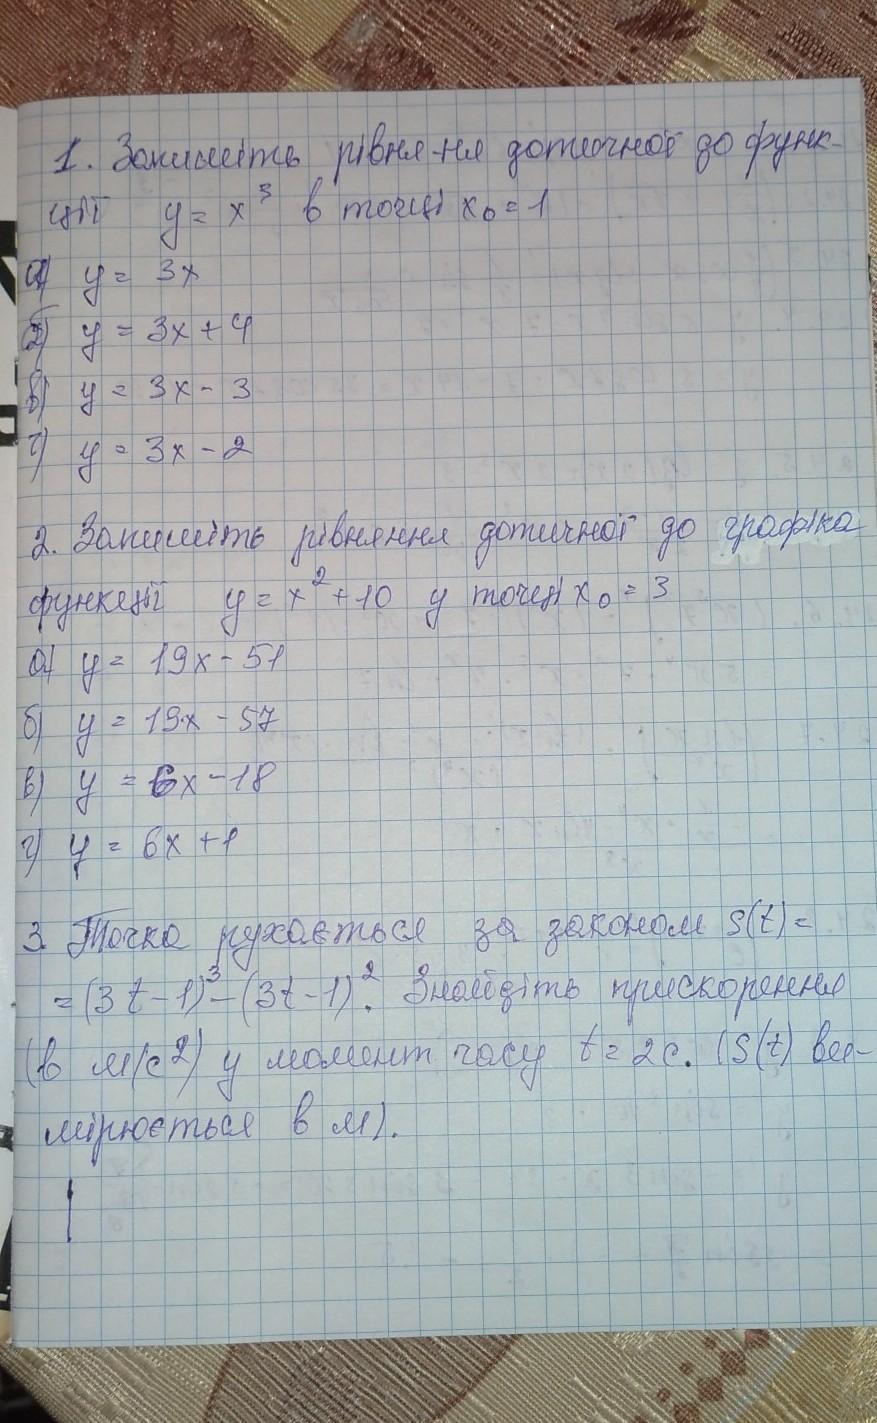 1. Запишіть рівня-ня дотичної до функ-
ції y = x³ в точці x₀ = 1
а) y = 3x
б) y = 3x + 4
в) y = 3x - 3
г) y = 3x - 2
2. Запишіть рівняння дотичної до графіка
функції y = x² + 10 у точці x₀ = 3
а) y = 19x - 51
б) y = 19x - 57
в) y = 6x - 18
г) y = 6x + 1
3. Точка рухається за законом S(t) =
= (3t - 1)³ - (3t - 1)². Знайдіть прискорення
(в м/с²) у момент часу t = 2с. (S(t) ви-
мірюється в м).